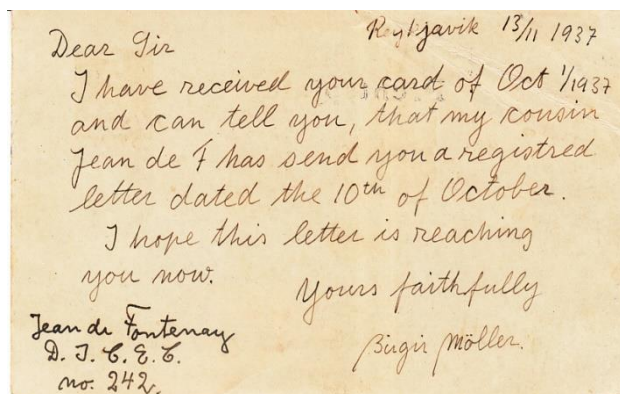 Reykjavik 13/11 1937
Dear Sir
I have received your card of Oct 1/1937
and can tell you, that my cousin
Jean de F has send you a registred
letter dated the 10th of October.
I hope this letter is reaching
you now.
Yours faithfully
Birgir Möller.
Jean de Fontenay
D. I. C. E. C.
no. 242.